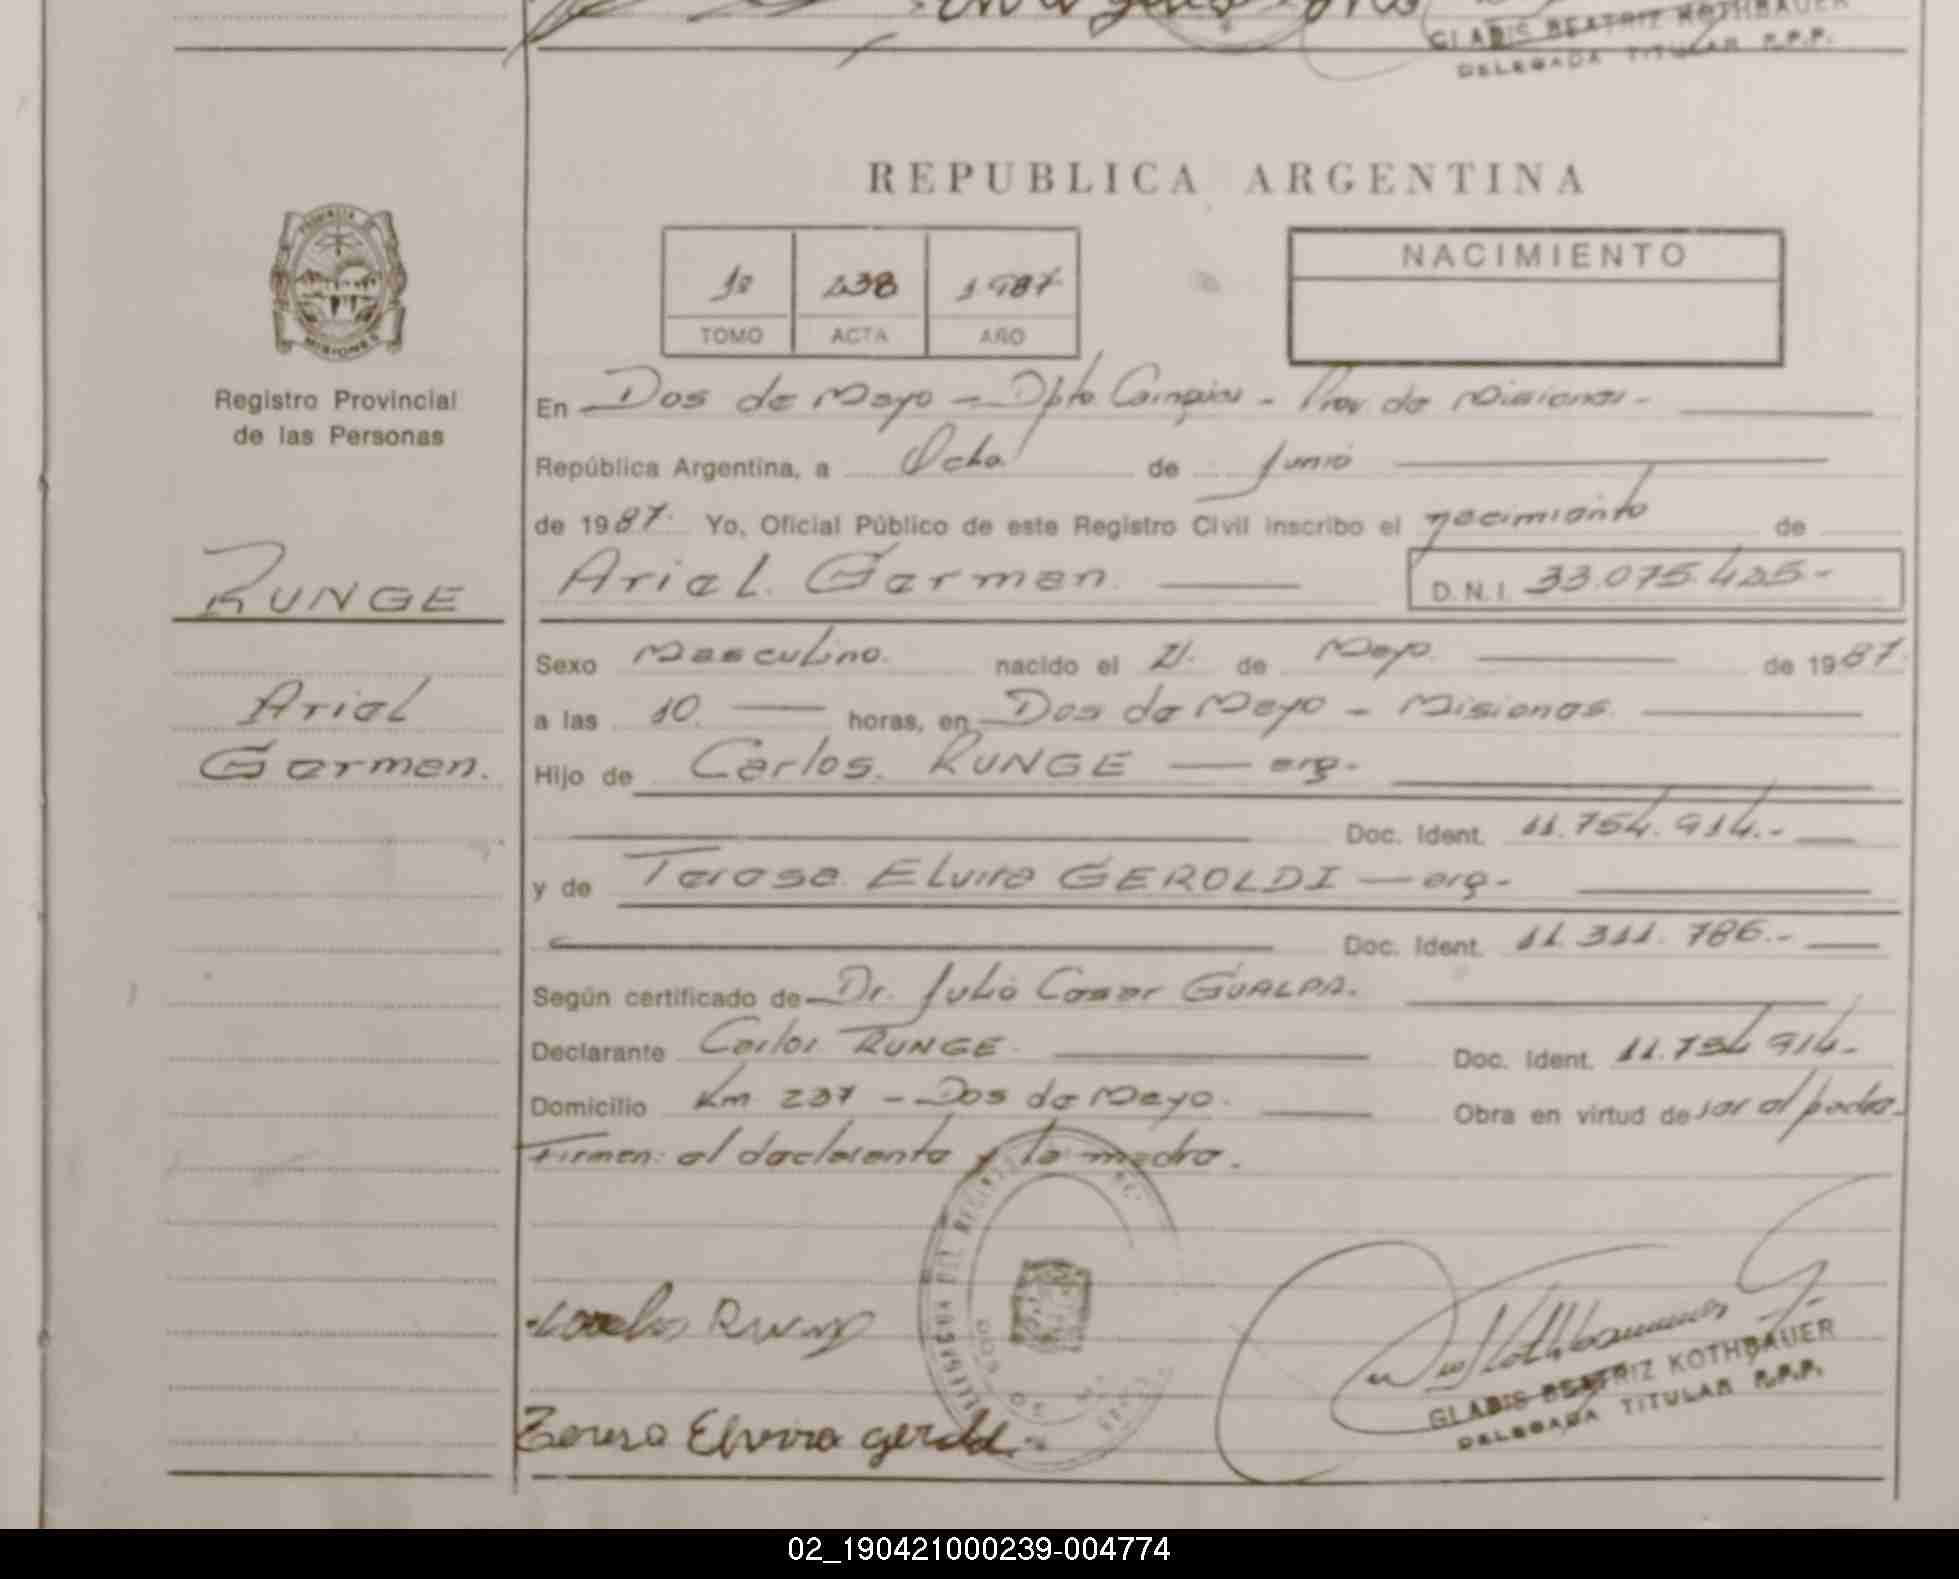 GLADIS BEATRIZ KOTHBAUER
DELEGADA TITULAR R.P.P.
REPUBLICA ARGENTINA
MISIONES
Registro Provincial
de las Personas
1º 238 1987
TOMO ACTA AÑO
NACIMIENTO
En Dos de Mayo - Dpto. Cainguas - Prov de Misiones -
República Argentina, a Ocho de Junio
de 1987. Yo, Oficial Público de este Registro Civil inscribo el nacimiento de
RUNGE
Ariel German.
D.N.I. 33.075.425-
Sexo Masculino. nacido el 21. de Mayo. de 1987.
Ariel
a las 10. horas, en Dos de Mayo - Misiones.
German.
Hijo de Carlos. RUNGE arg-
Doc. Ident. 11.754.914.-
y de Teresa Elvira GEROLDI arg-
Doc. Ident. 11.311.786.-
Según certificado de Dr. Julio Cesar GUALPA.
Declarante Carlos RUNGE. Doc. Ident. 11.754.914-
Domicilio Km 237 - Dos de Mayo. Obra en virtud de ser el padre.
Firman: el declarante y la madre.
DOS DE
GLADIS BEATRIZ KOTHBAUER
DELEGADA TITULAR R.P.P.
Teresa Elvira
02_190421000239-004774